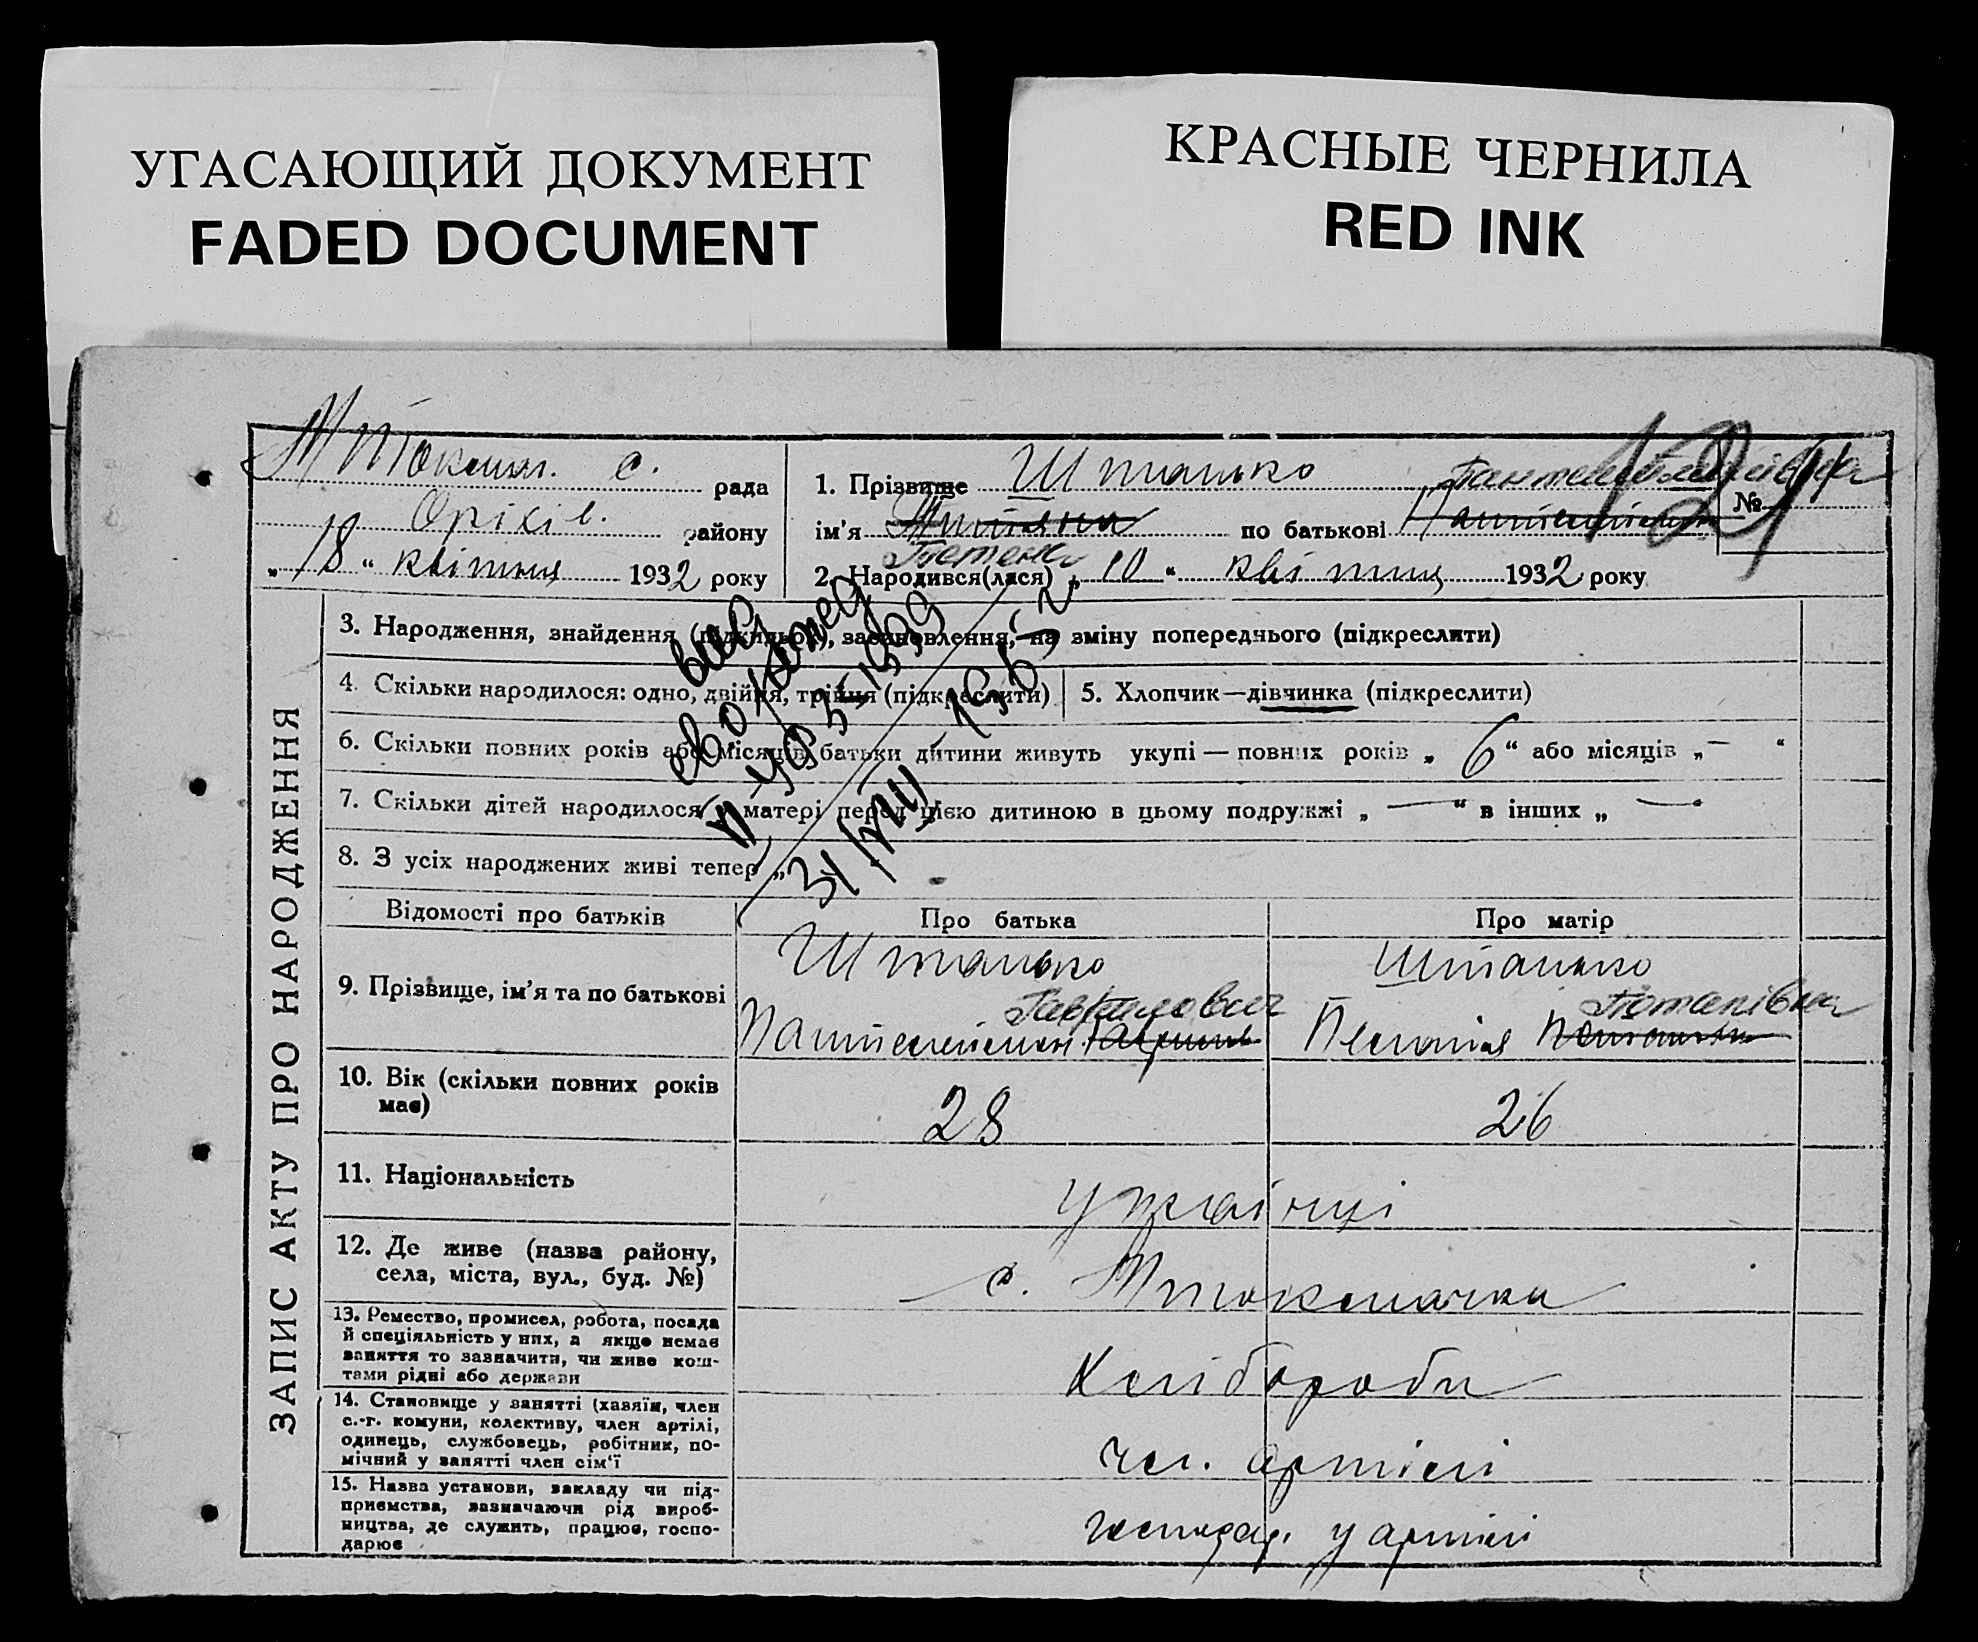 УГАСАЮЩИЙ ДОКУМЕНТ
FADED DOCUMENT
КРАСНЫЕ ЧЕРНИЛА
RED INK
М Токмач. с. рада
Оріхів. району
„18“ квітня 1932 року
1. Прізвище Штанько
ім'я Тетяна по батькові Пантелеймонівна №
Тетяна
2. Народився(лася) „10“ квітня 1932 року
ЗАПИС АКТУ ПРО НАРОДЖЕННЯ
3. Народження, знайдення (підкидьок), засиновлення, на зміну попереднього (підкреслити)
4. Скільки народилося: одно, двійня, трійня (підкреслити)
5. Хлопчик—дівчинка (підкреслити)
6. Скільки повних років або місяців батьки дитини живуть укупі — повних років „6“ або місяців „—“
7. Скільки дітей народилося матері перед цією дитиною в цьому подружжі „—“ в інших „—“
8. З усіх народжених живі тепер „
Відомості про батьків Про батька Про матір
9. Прізвище, ім'я та по батькові
Штанько
Гаврилович
Пантелеймон
Штанько
Потапівна
Пелагія
10. Вік (скільки повних років має) 28 26
11. Національність українці
12. Де живе (назва району, села, міста, вул., буд. №) с. Мтокмачка
13. Ремество, промисел, робота, посада й спеціяльність у них, а якщо немає заняття то зазначити, чи живе коштами рідні або держави
Хлібороби
14. Становище у занятті (хазяїн, член с.-г. комуни, колективу, член артілі, одинець, службовець, робітник, помічний у занятті член сім'ї
чл. артілі
15. Назва установи, закладу чи підприємства, зазначаючи рід виробництва, де служить, працює, господарює
господар. у артілі